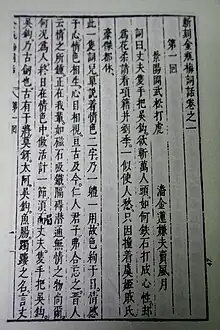 新刻金瓶梅詞話卷之一
第一回
景陽岡武松打虎
潘金蓮嫌夫賣風月
詞曰丈夫隻手把吳鈎欲斬萬人頭如何鐵石打成心性却
為花柔請看項籍并劉季一似使人愁只因撞着虞姬戚氏
豪傑都休
此一隻詞兒單說着情色二字乃一體一用故色絢于目情感
于心情色相生心目相視亘古及今仁人君子弗合忘之晉人
云情之所鍾正在我輩如磁石吸鐵隔碍潛通無情之物尚爾
何况為人終日在情色中做活計一節須知丈夫隻手把吳鈎
吳鈎乃古劍也古有干將莫鋣太阿吳鈎魚腸躅䥃之名言丈